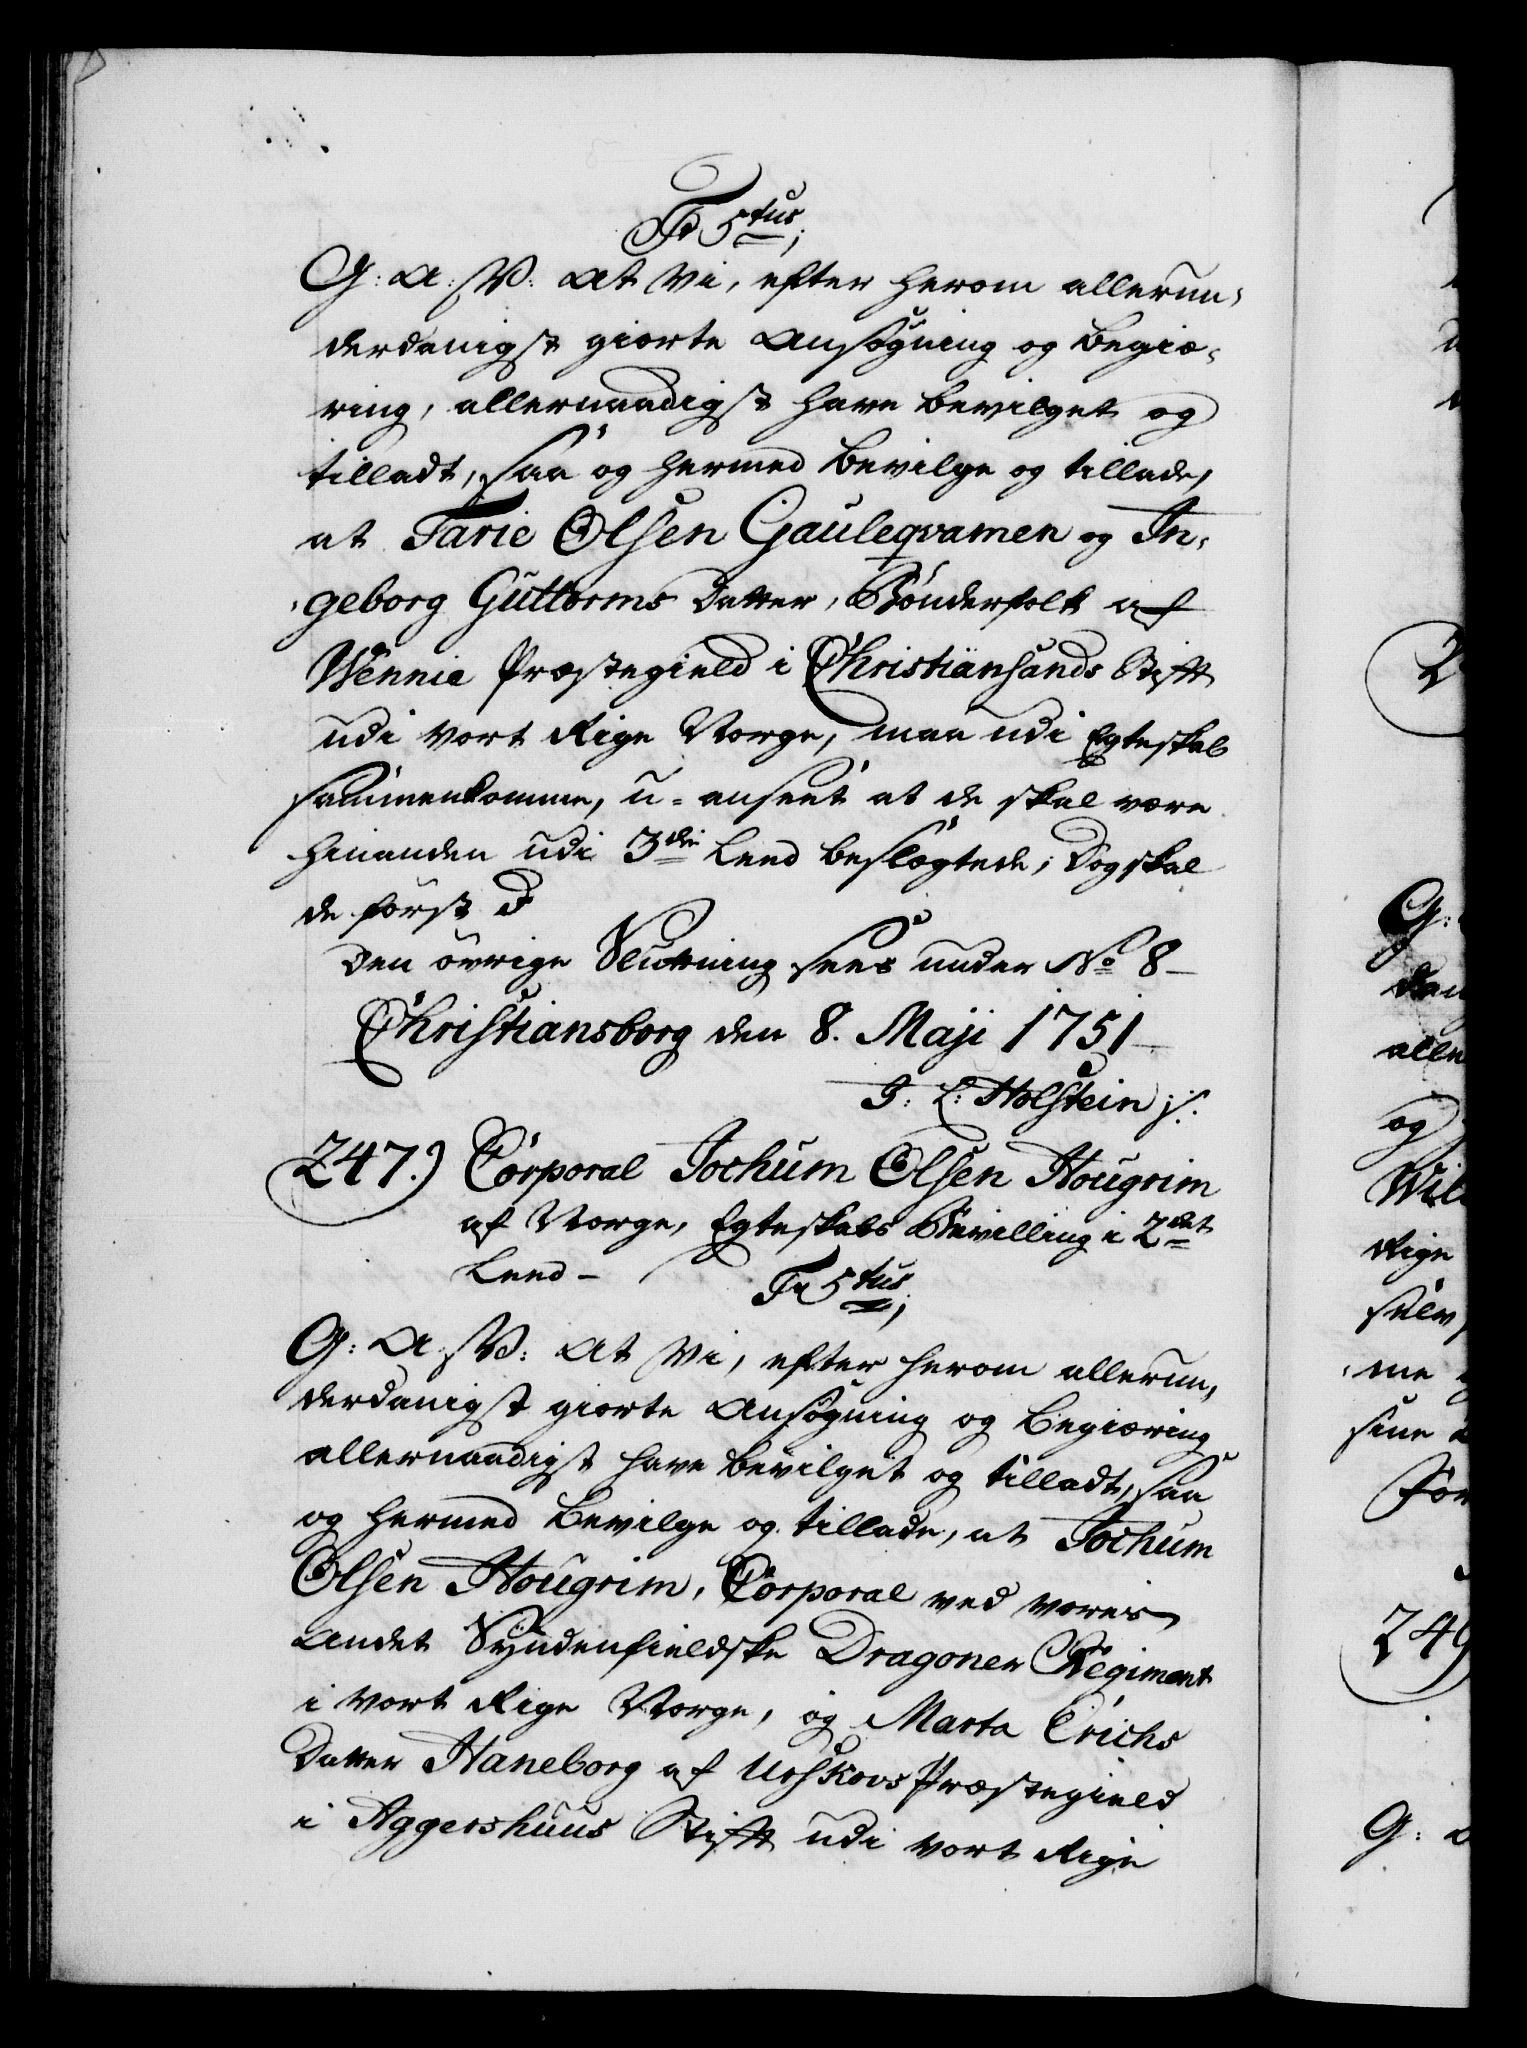 Fr 5tus;
G: A: W: At Vi, efter herom allerun-
derdanigst giorte Ansøgning og Begiæ-
ring, allernaadigst have bevilget og
tilladt, saa og hermed bevilge og tillade,
at Tarie Olsen Gauleqvamen og In-
geborg Guttorms Datter, Bønderfolk af
Wennie Præstegield i Christiansands Stift
udi vort Rige Norge, maa udi Egteskab
sammenkomme, u-anseet at de skal være
hinanden udi 3die Leed beslægtede; Dog skal
de først
Den øvrige Slutning sees under No 8
Christiansborg den 8. Maji 1751
J: L: Holstein
247.) Corporal Jochum Olsen Hougrim
af Norge, Egteskabs Bevilling i 2det
Leed -
Fr 5tus;
G: A: W: At Vi, efter herom allerun-
derdanigst giorte Ansøgning og Begiæring
allernaadigst have bevilget og tilladt, saa
og hermed bevilge og tillade, at Jochum
Olsen Hougrim, Corporal ved vores
Andet Syndenfieldske Dragoner Regiment
i vort Rige Norge, og Marta Erichs
Datter Haneborg af Urskovs Præstegield
i Aggershuus Stift udi vort Rige